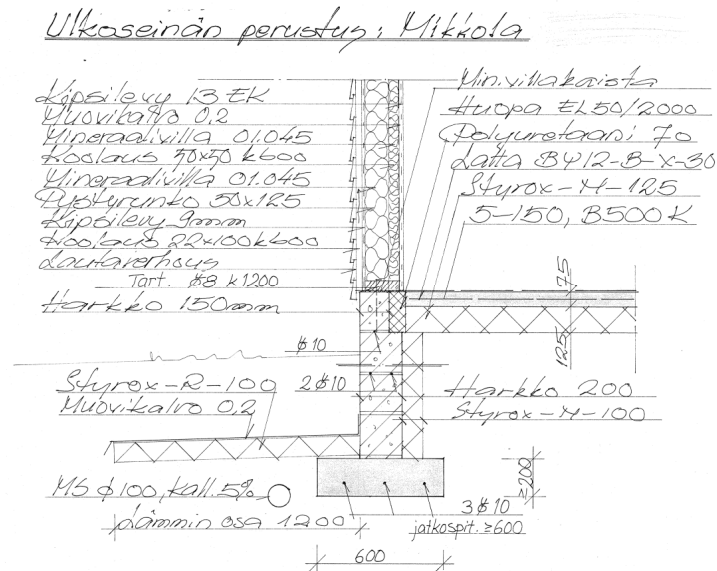 Ulkoseinän perustus: Mikkola
Kipsilevy 13 EK
Muovikalvo 0,2
Mineraalivilla 01.045
Koolaus 50x50 k600
Mineraalivilla 01.045
Pystyrunko 50x125
Kipsilevy 9mm
Koolaus 22x100k600
Lautaverhous
Tart. ø8 k1200
Harkko 150mm
Min.villakaista
Huopa EL50/2000
Polyuretaani 70
Laatta BY12-B-X-30
Styrox-M-125
5-150, B500K
75
125
ø10
2ø10
Styrox-R-100
Muovikalvo 0,2
Harkko 200
Styrox-M-100
MS ø100, kall. 5%
Lämmin osa 1200
≥200
3ø10
jatkospit. ≥600
600